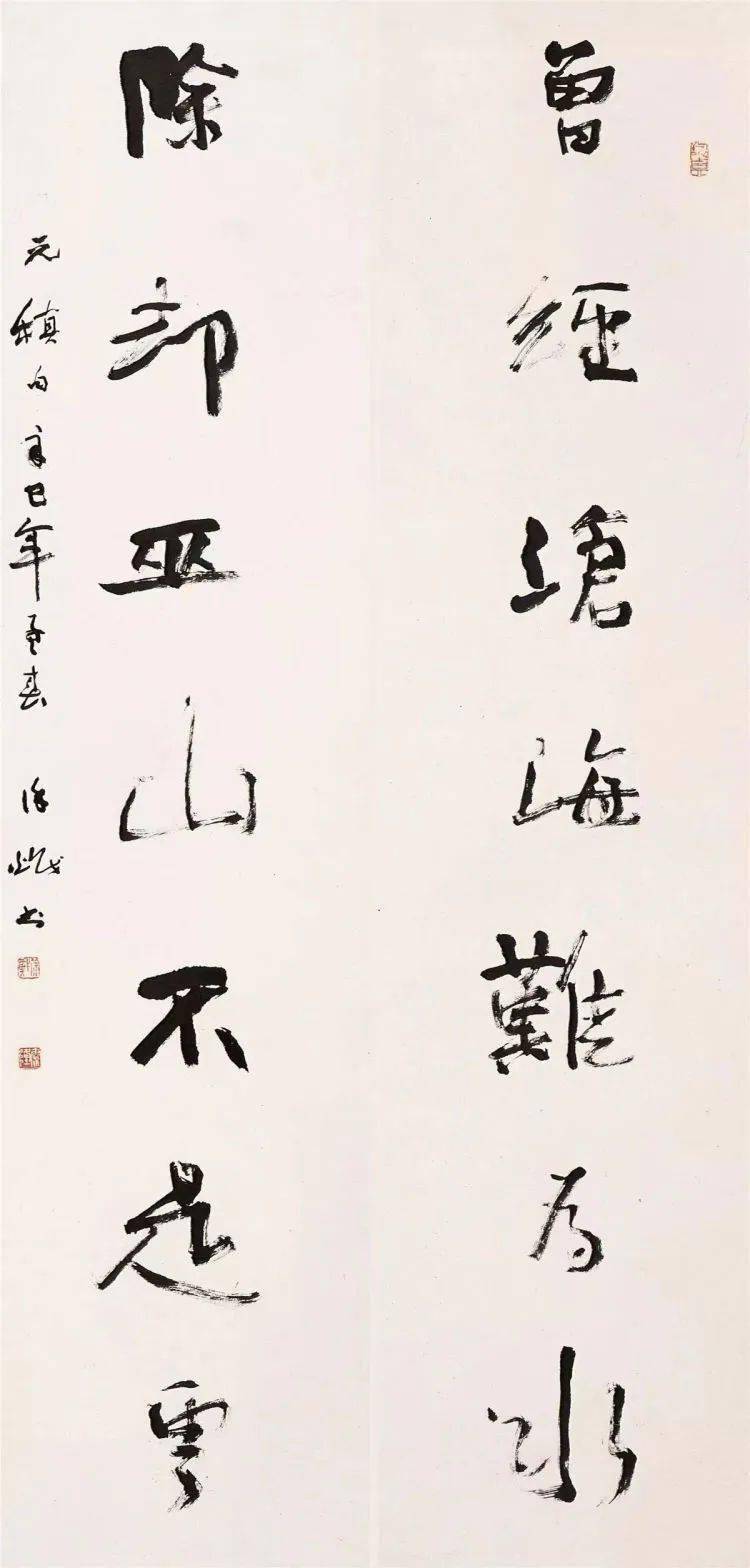 曾經滄海難為水
除卻巫山不是雲
元稹句 辛巳年孟春 徐 書